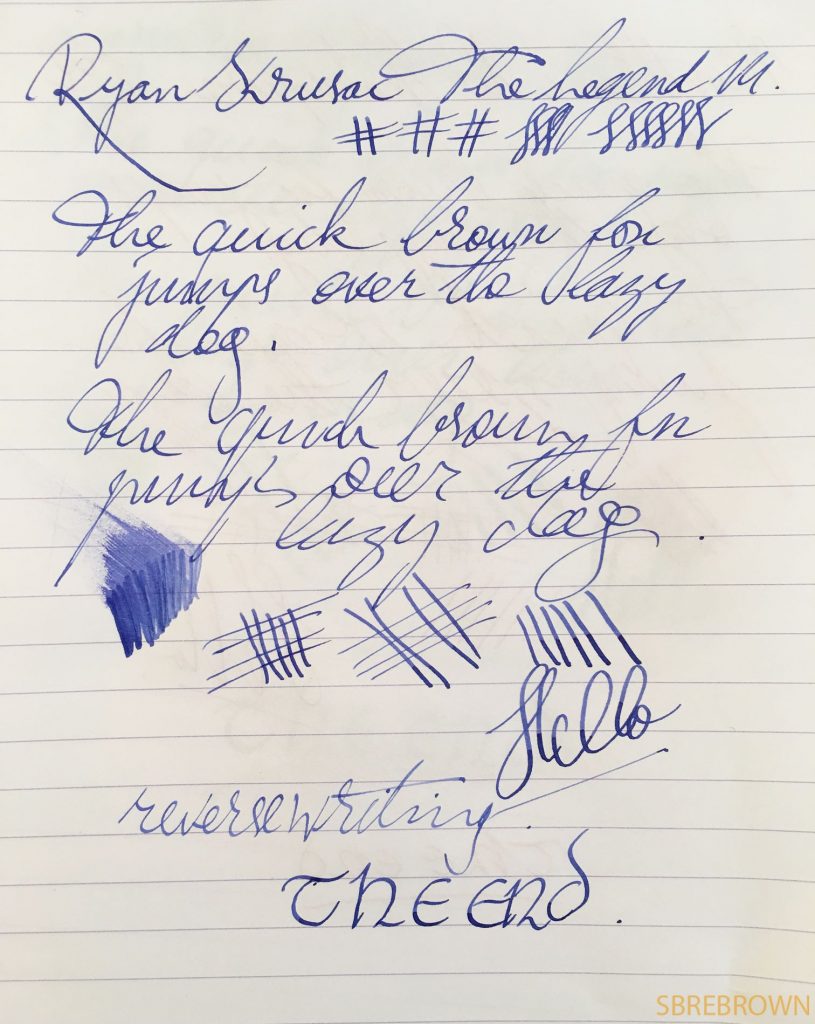 Ryan Krusac The Legend M.
The quick brown fox
jumps over the lazy
dog.
The quick brown fox
jumps over the
lazy dog.
Hello
reverse writing.
The End.
SBREBROWN